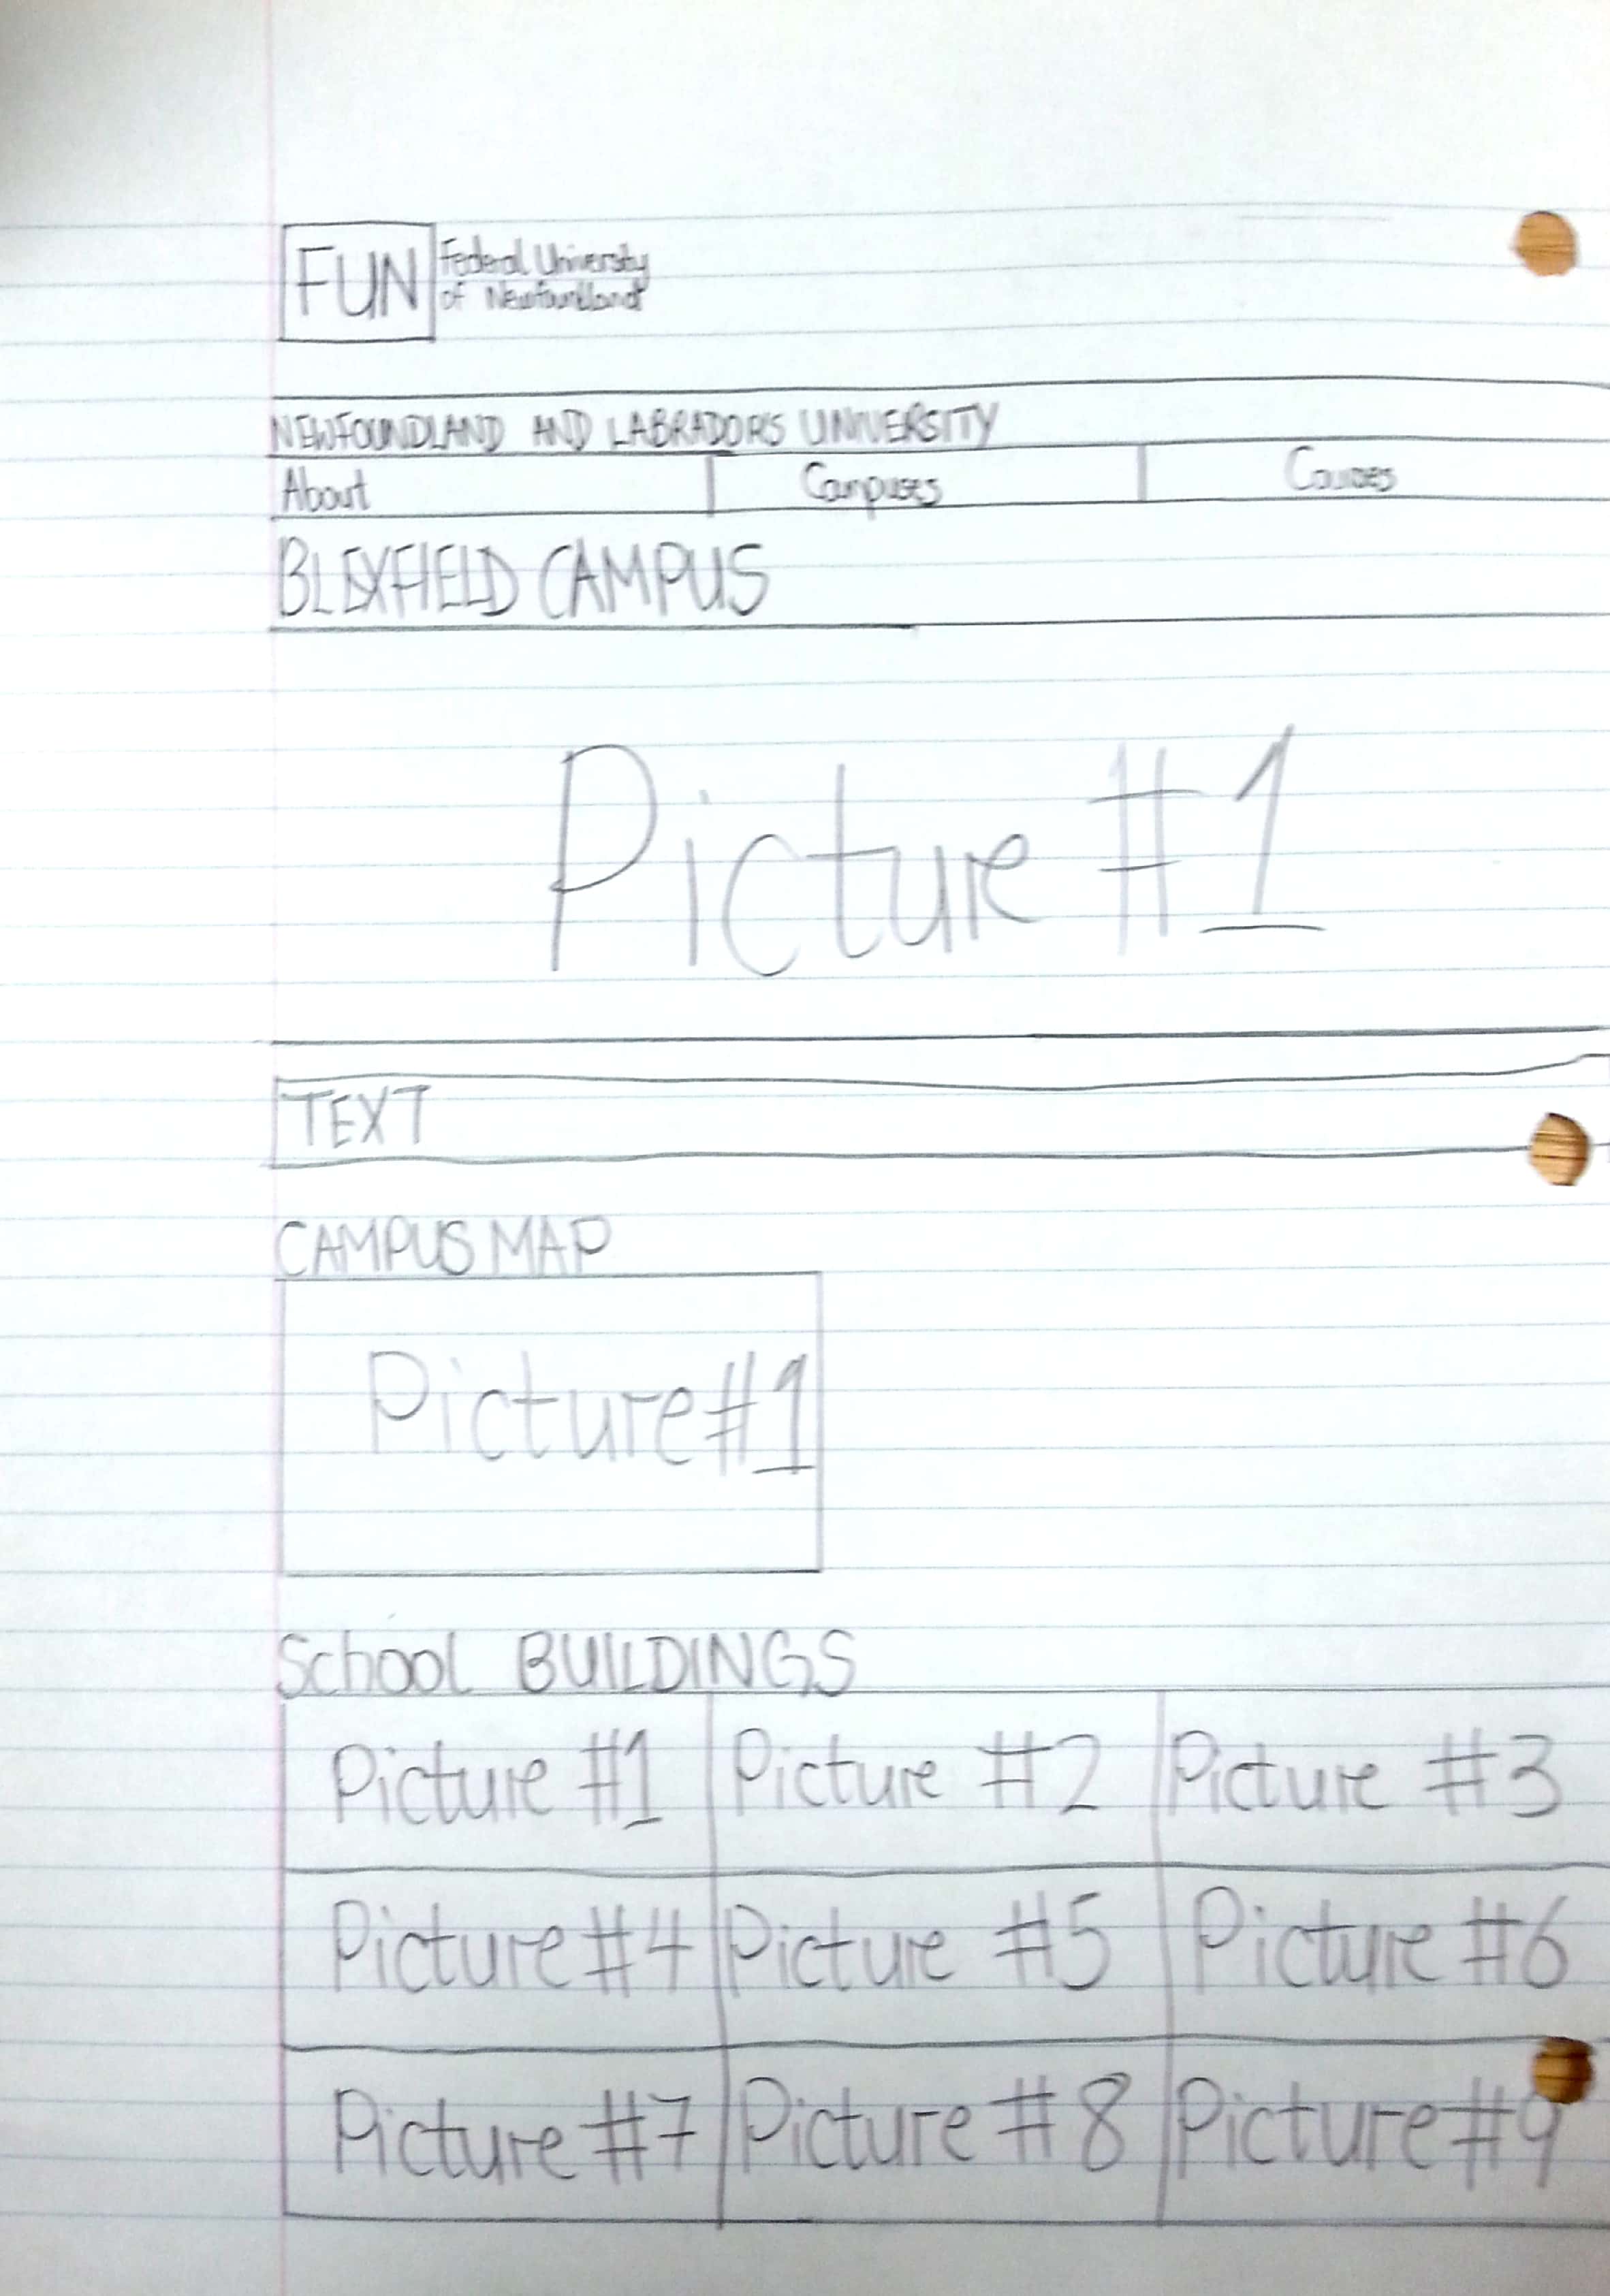 FUN
Federal University
of Newfoundland
NEWFOUNDLAND AND LABRADORS UNIVERSITY
About Campuses Courses
BLEXFIELD CAMPUS
Picture #1
TEXT
CAMPUS MAP
Picture #1
School BUILDINGS
Picture #1 Picture #2 Picture #3
Picture #4 Picture #5 Picture #6
Picture #7 Picture #8 Picture #9